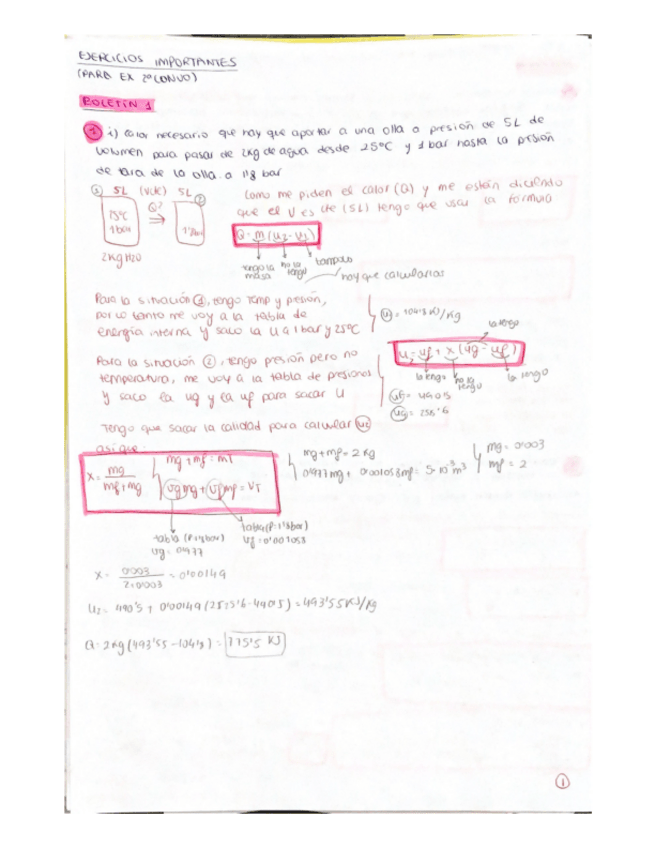 EJERCICIOS IMPORTANTES
(PARA EX 2º CONVO)
BOLETÍN 1
1 i) Calor necesario que hay que aportar a una olla a presión de 5L de
volumen para pasar de 2kg de agua desde 25ºC y 1 bar hasta la presión
de tara de la olla a 1'8 bar
1 5L (Vcte) 5L 2
Q?
25ºC
1 bar
2kg H2O
Como me piden el calor (Q) y me están diciendo
que el V es cte (5L) tengo que usar la formula
Q = m (u2 - u1)
tengo la masa
no la tengo
tampoco
hay que calcularlas
Para la situación 1, tengo Temp y presión,
por lo tanto me voy a la tabla de
energía interna y saco la U a 1 bar y 25ºC
u1 = 104'8 KJ/Kg
Para la situación 2, tengo presión pero no
temperatura, me voy a la tabla de presiones
y saco la ug y la uf para sacar U
la tengo
u2 = uf + x (ug - uf)
la tengo
no la tengo
la tengo
uf = 490'5
ug =
Tengo que sacar la calidad para calcular u2
así que:
x = mg / mf + mg
mg + mf = mT
vg mg + vf mf = VT
mg + mf = 2 kg
0'977mg + 0'001058mf = 5·10⁻³ m³
mg = 0'003
mf = 2
tabla (P=1'8bar)
vg = 0'977
tabla (P=1'8bar)
vf = 0'001058
x = 0'003 / 2+0'003 = 0'00149
u2 = 490'5 + 0'00149 (2525'6 - 490'5) = 493'55 KJ/kg
Q = 2kg (493'55 - 104'8) = 775'5 KJ
1